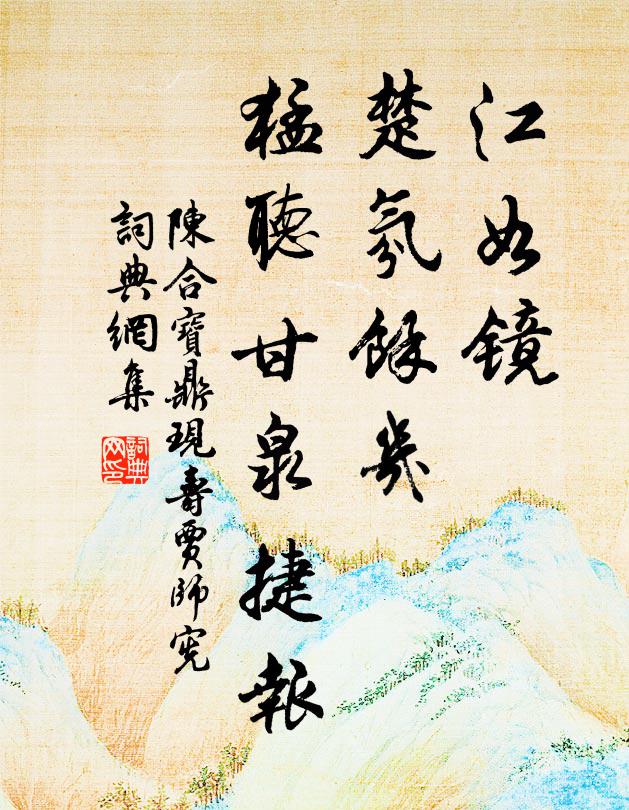 江如镜
楚氛餘幾
猛聽甘泉捷報
陳合寶鼎現壽賈師憲
詞典網集
詞典網印